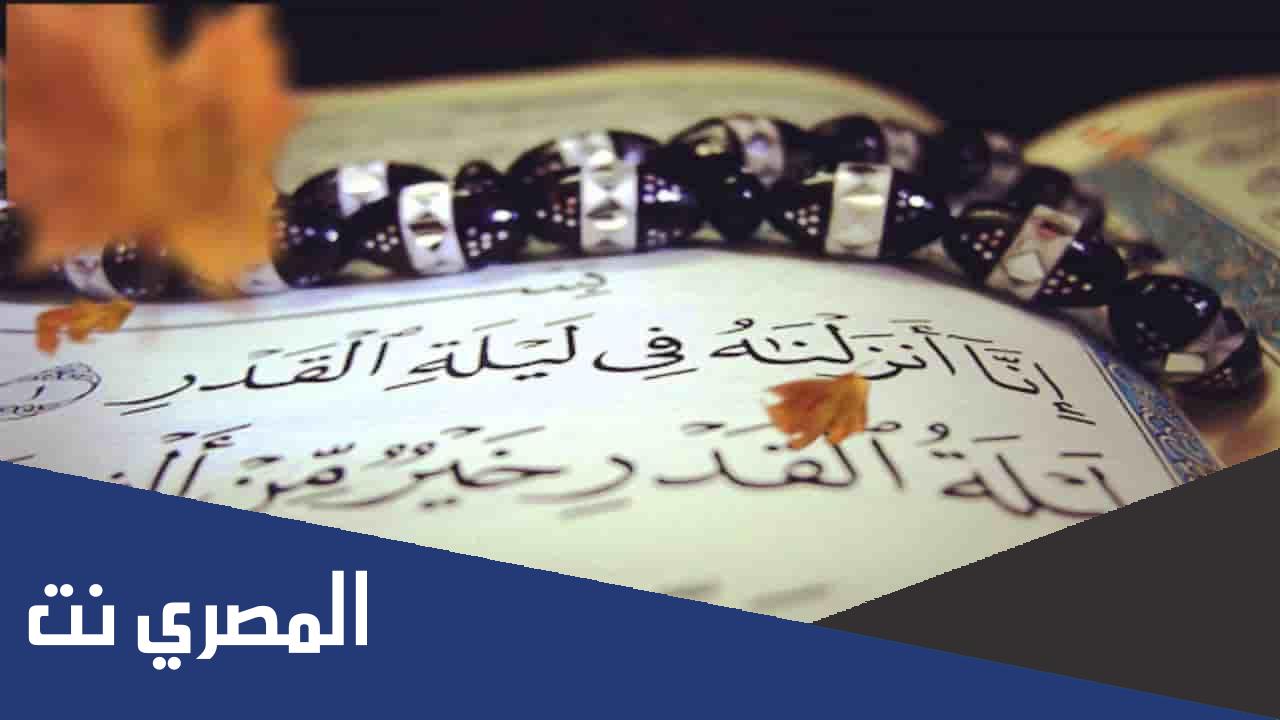 إِنَّآ أَنزَلْنَٰهُ فِى لَيْلَةِ ٱلْقَدْرِ ١
لَيْلَةُ ٱلْقَدْرِ خَيْرٌ مِّنْ
المصري نت